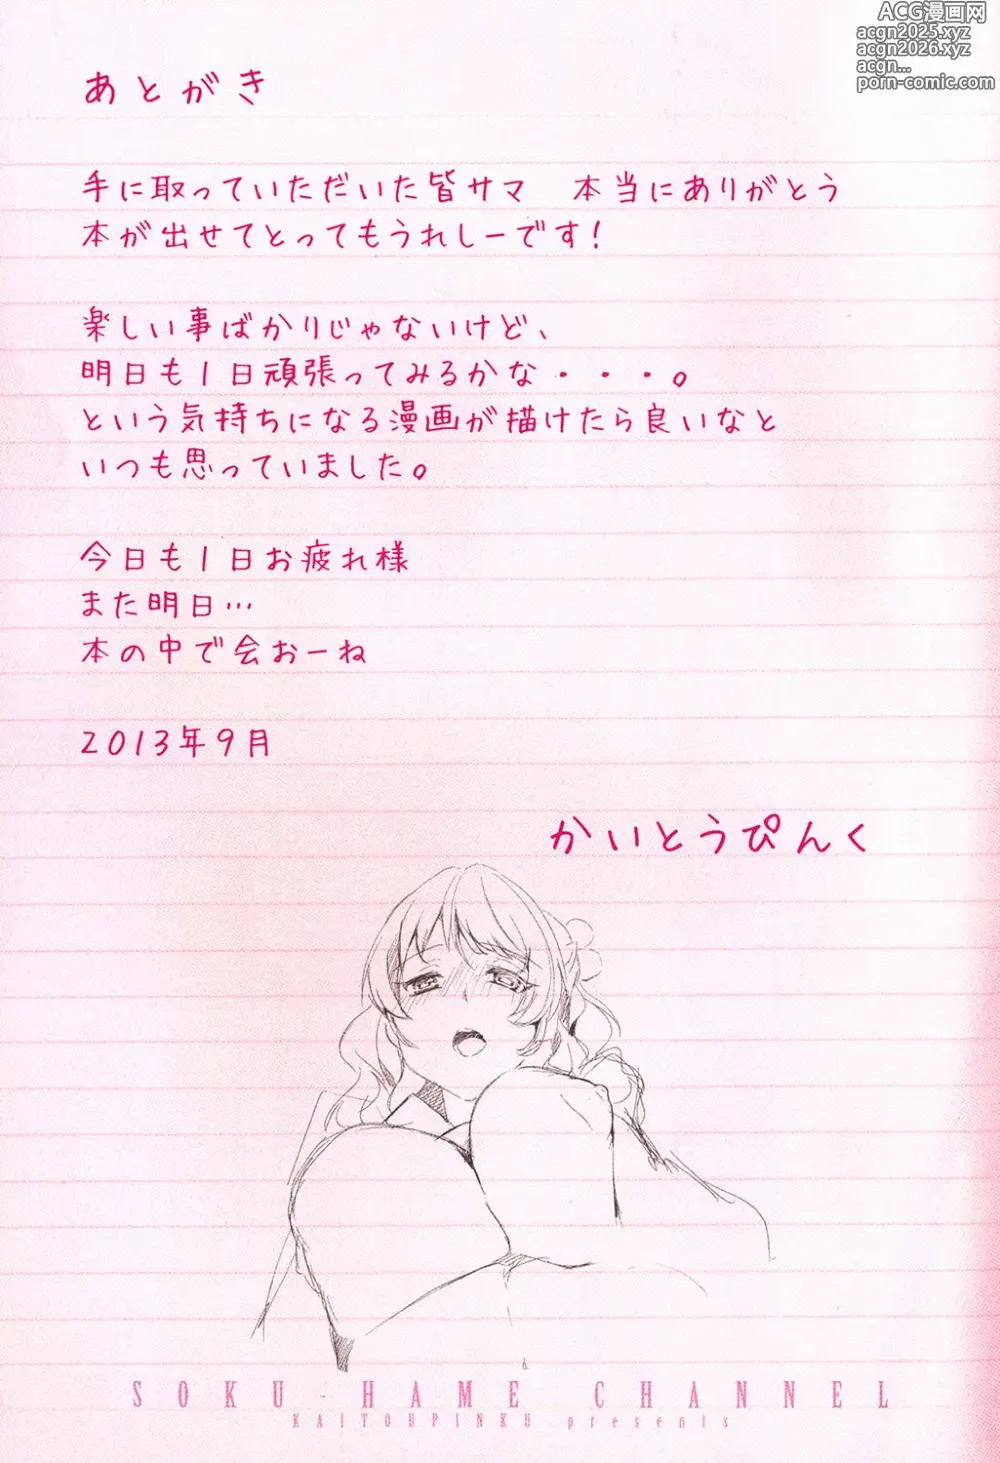 ACG漫画网
acgn2025.xyz
acgn2026.xyz
acgn...
porn-comic.com
あとがき
手に取っていただいた皆サマ　本当にありがとう
本が出せてとってもうれしーです!
楽しい事ばかりじゃないけど、
明日も1日頑張ってみるかな・・・。
という気持ちになる漫画が描けたら良いなと
いつも思っていました。
今日も1日お疲れ様
また明日…
本の中で会おーね
2013年9月
かいとうぴんく
SOKU-HAME CHANNEL
KAITOUPINKU presents